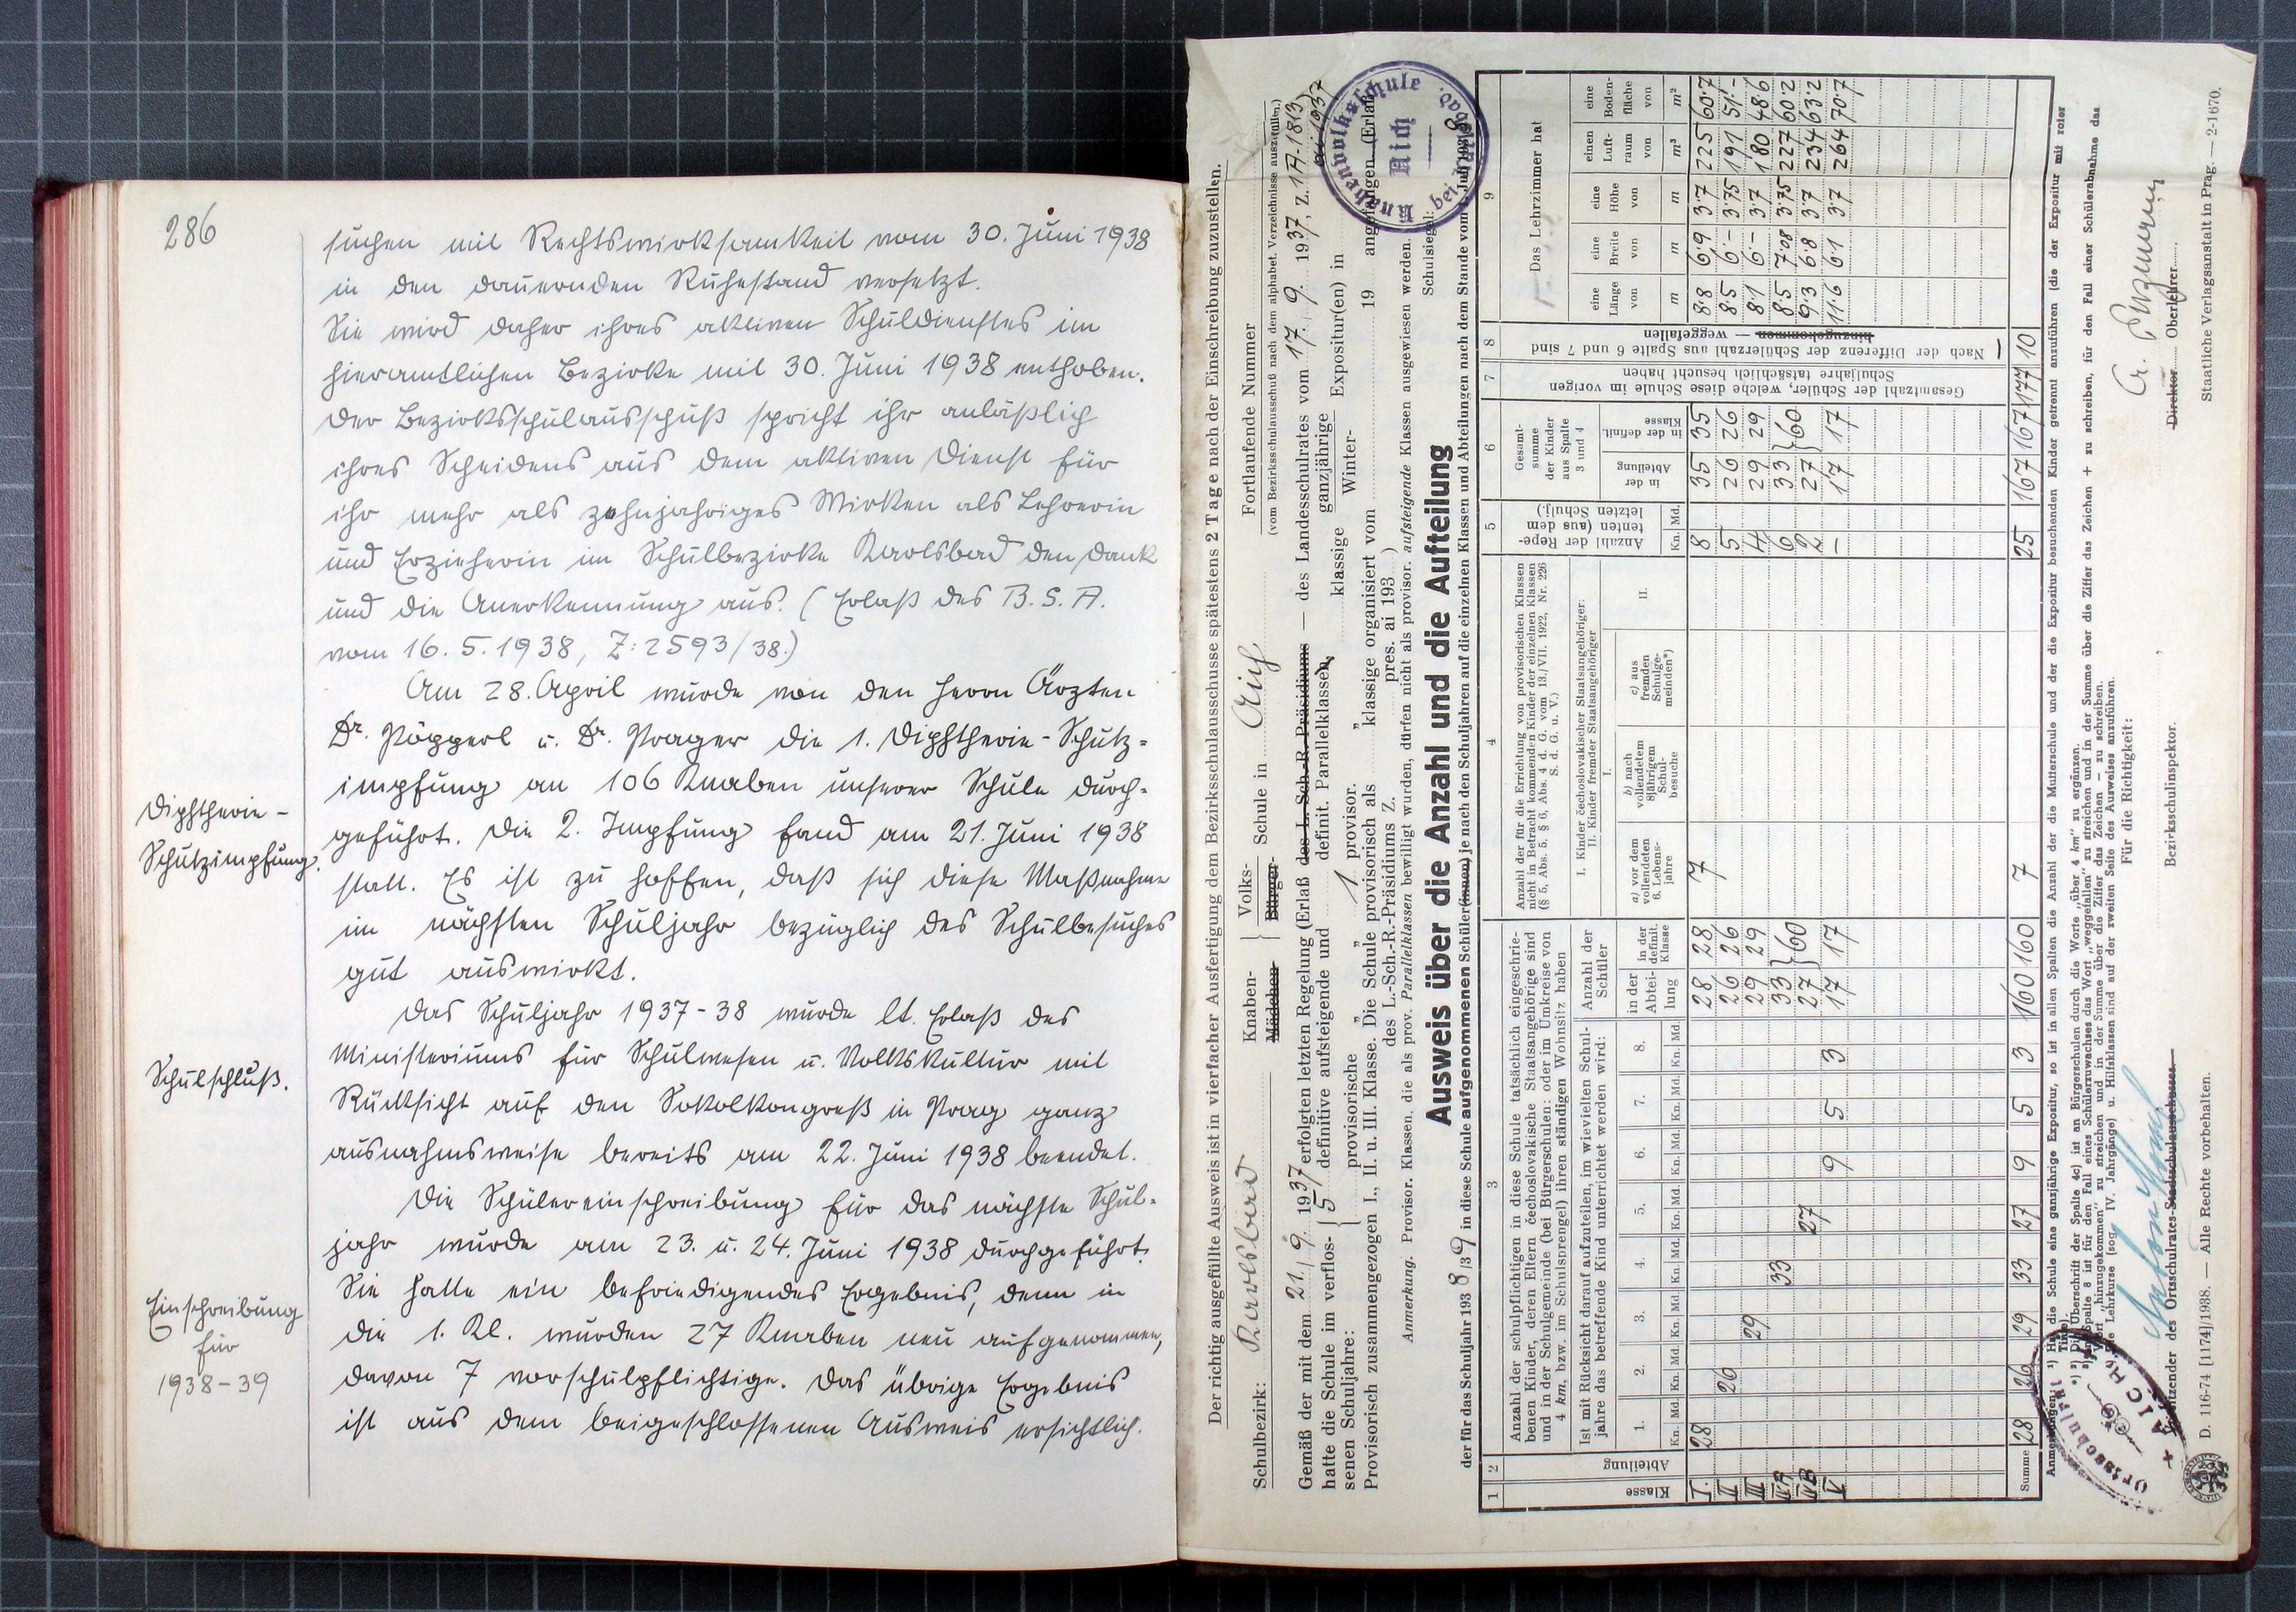 286
suchen mit Rechtswirksamkeit vom 30. Juni 1938
in den dauernden Ruhestand versetzt.
Sie wird daher ihres aktiven Schuldienstes im
hieramtlichen Bezirke mit 30. Juni 1938 enthoben.
Der Bezirksschulausschuß spricht ihr anläßlich
ihres Scheidens aus dem aktiven Dienst für
ihr mehr als zehnjähriges Wirken als Lehrerin
und Erzieherin im Schulbezirke Karlsbad den Dank
und die Anerkennung aus. (Erlaß des B.S.A.
vom 16.5.1938, Z: 2593/38.)
Am 28. April wurde von den Herrn Ärzten
Dr. Pöpperl u. Dr. Prager die 1. Diphtherie-Schutz=
impfung an 106 Knaben unserer Schule durch-
Diphtherie-
geführt. Die 2. Impfung fand am 21. Juni 1938
Schutzimpfung.
statt. Es ist zu hoffen, daß sich diese Maßnahme
im nächsten Schuljahr bezüglich des Schulbesuches
gut auswirkt.
Das Schuljahr 1937-38 wurde lt. Erlaß des
Ministeriums für Schulwesen u. Volkskultur mit
Schulschluß.
Rücksicht auf den Sokolkongreß in Prag ganz
ausnahmsweise bereits am 22. Juni 1938 beendet.
Die Schülereinschreibung für das nächste Schul=
jahr wurde am 23. u. 24. Juni 1938 durchgeführt.
Sie hatte ein befriedigendes Ergebnis, denn in
Einschreibung
für
1938-39
die 1. Kl. wurden 27 Knaben neu aufgenommen,
davon 7 vorschulpflichtige. Das übrige Ergebnis
ist aus dem beigeschlossenen Ausweis ersichtlich.
Der richtig ausgefüllte Ausweis ist in vierfacher Ausfertigung dem Bezirksschulausschusse spätestens 2 Tage nach der Einschreibung zuzustellen.
Schulbezirk: Karlsbad Knaben- Mädchen- Volks- Bürger- Schule in Aich Fortlaufende Nummer
(vom Bezirksschulausschuß nach dem alphabet. Verzeichnisse auszufüllen.)
Gemäß der mit dem 21./9. 1937 erfolgten letzten Regelung (Erlaß des L. Sch.-R. Präsidiums — des Landesschulrates vom 17./9. 1937, Z. 1A-1813
ai 1937)
hatte die Schule im verflos- 5 definitive aufsteigende und definit. Parallelklassen, klassige ganzjährige Expositur(en) in
senen Schuljahre: provisorische 1 provisor. Winter-
Provisorisch zusammengezogen I., II. u. III. Klasse. Die Schule provisorisch als klassige organisiert vom 19 angefangen (Erlaß
des L.-Sch.-R.-Präsidiums Z. pres. ai 193 )
Anmerkung. Provisor. Klassen, die als prov. Parallelklassen bewilligt wurden, dürfen nicht als provisor. aufsteigende Klassen ausgewiesen werden.
Schulsiegel:
Knabenvolksschule
Aich
bei Karlsbad.
Ausweis über die Anzahl und die Aufteilung
der für das Schuljahr 1938/39 in diese Schule aufgenommenen Schüler(innen) je nach den Schuljahren auf die einzelnen Klassen und Abteilungen nach dem Stande vom 1. Juli 1938
1 2 3 4 5 6 7 8 9
Klasse
Abteilung
Anzahl der schulpflichtigen in diese Schule tatsächlich eingeschrie-
benen Kinder, deren Eltern čechoslovakische Staatsangehörige sind
und in der Schulgemeinde (bei Bürgerschulen: oder im Umkreise von
4 km, bzw. im Schulsprengel) ihren ständigen Wohnsitz haben
Ist mit Rücksicht darauf aufzuteilen, im wievielten Schul-
jahre das betreffende Kind unterrichtet werden wird:
1. 2. 3. 4. 5. 6. 7. 8.
Kn. Md. Kn. Md. Kn. Md. Kn. Md. Kn. Md. Kn. Md. Kn. Md. Kn. Md.
Anzahl der
Schüler
in der
Abtei-
lung
in der
definit.
Klasse
Anzahl der für die Errichtung von provisorischen Klassen
nicht in Betracht kommenden Kinder der einzelnen Klassen
(§ 5, Abs. 5, § 6, Abs. 4 d. G. vom 13./VII. 1922, Nr. 226
S. d. G. u. V.)
I. Kinder čechoslovakischer Staatsangehöriger:
II. Kinder fremder Staatsangehöriger
I.
a) vor dem
vollendeten
6. Lebens-
jahre
b) nach
vollendetem
8jährigem
Schul-
besuche
c) aus
fremden
Schulge-
meinden*)
II.
Anzahl der Repe-
tenten (aus dem
letzten Schulj.)
Kn. Md.
Gesamt-
summe
der Kinder
aus Spalte
3 und 4
in der
Abteilung
in der definit.
Klasse
Gesamtzahl der Schüler, welche diese Schule im vorigen
Schuljahre tatsächlich besucht haben
Nach der Differenz der Schülerzahl aus Spalte 6 und 7 sind
hinzugekommen — weggefallen
Das Lehrzimmer hat
eine Länge von m
eine Breite von m
eine Höhe von m
einen Luft-raum von m³
eine Boden-fläche von m²
I. 28 28 28 7 8 35 35 8·8 6·9 3·7 225 60·7
II 26 26 26 5 26 26 8·5 6·- 3·75 191 51·-
III 29 29 29 4 29 29 8·1 6·- 3·7 180 48·6
IVA 33 33 }60 6 33 }60 8·5 7·08 3·75 227 60·2
IVB 27 27 2 27 9·3 6·8 3·7 234 63·2
V 9 5 3 17 17 — 17 17 11·6 6·1 3·7 264 70·7
Summe 28 26 29 33 27 9 5 3 160 160 7 25 167 167 177 10
Anmerkungen: ¹) Hat die Schule eine ganzjährige Expositur, so ist in allen Spalten die Anzahl der die Mutterschule und der die Expositur besuchenden Kinder getrennt anzuführen (die der Expositur mit roter
Tinte).
²) Die Überschrift der Spalte 4c) ist an Bürgerschulen durch die Worte „über 4 km“ zu ergänzen.
Für die Richtigkeit:
Ortsschulrat
AICH
Anton
Vorsitzender des Ortsschulrates-Stadtschulausschusses.
Bezirksschulinspektor.
Direktor Oberlehrer
D. 116-74 [1174]/1938. — Alle Rechte vorbehalten.
Staatliche Verlagsanstalt in Prag. — 2-1670.